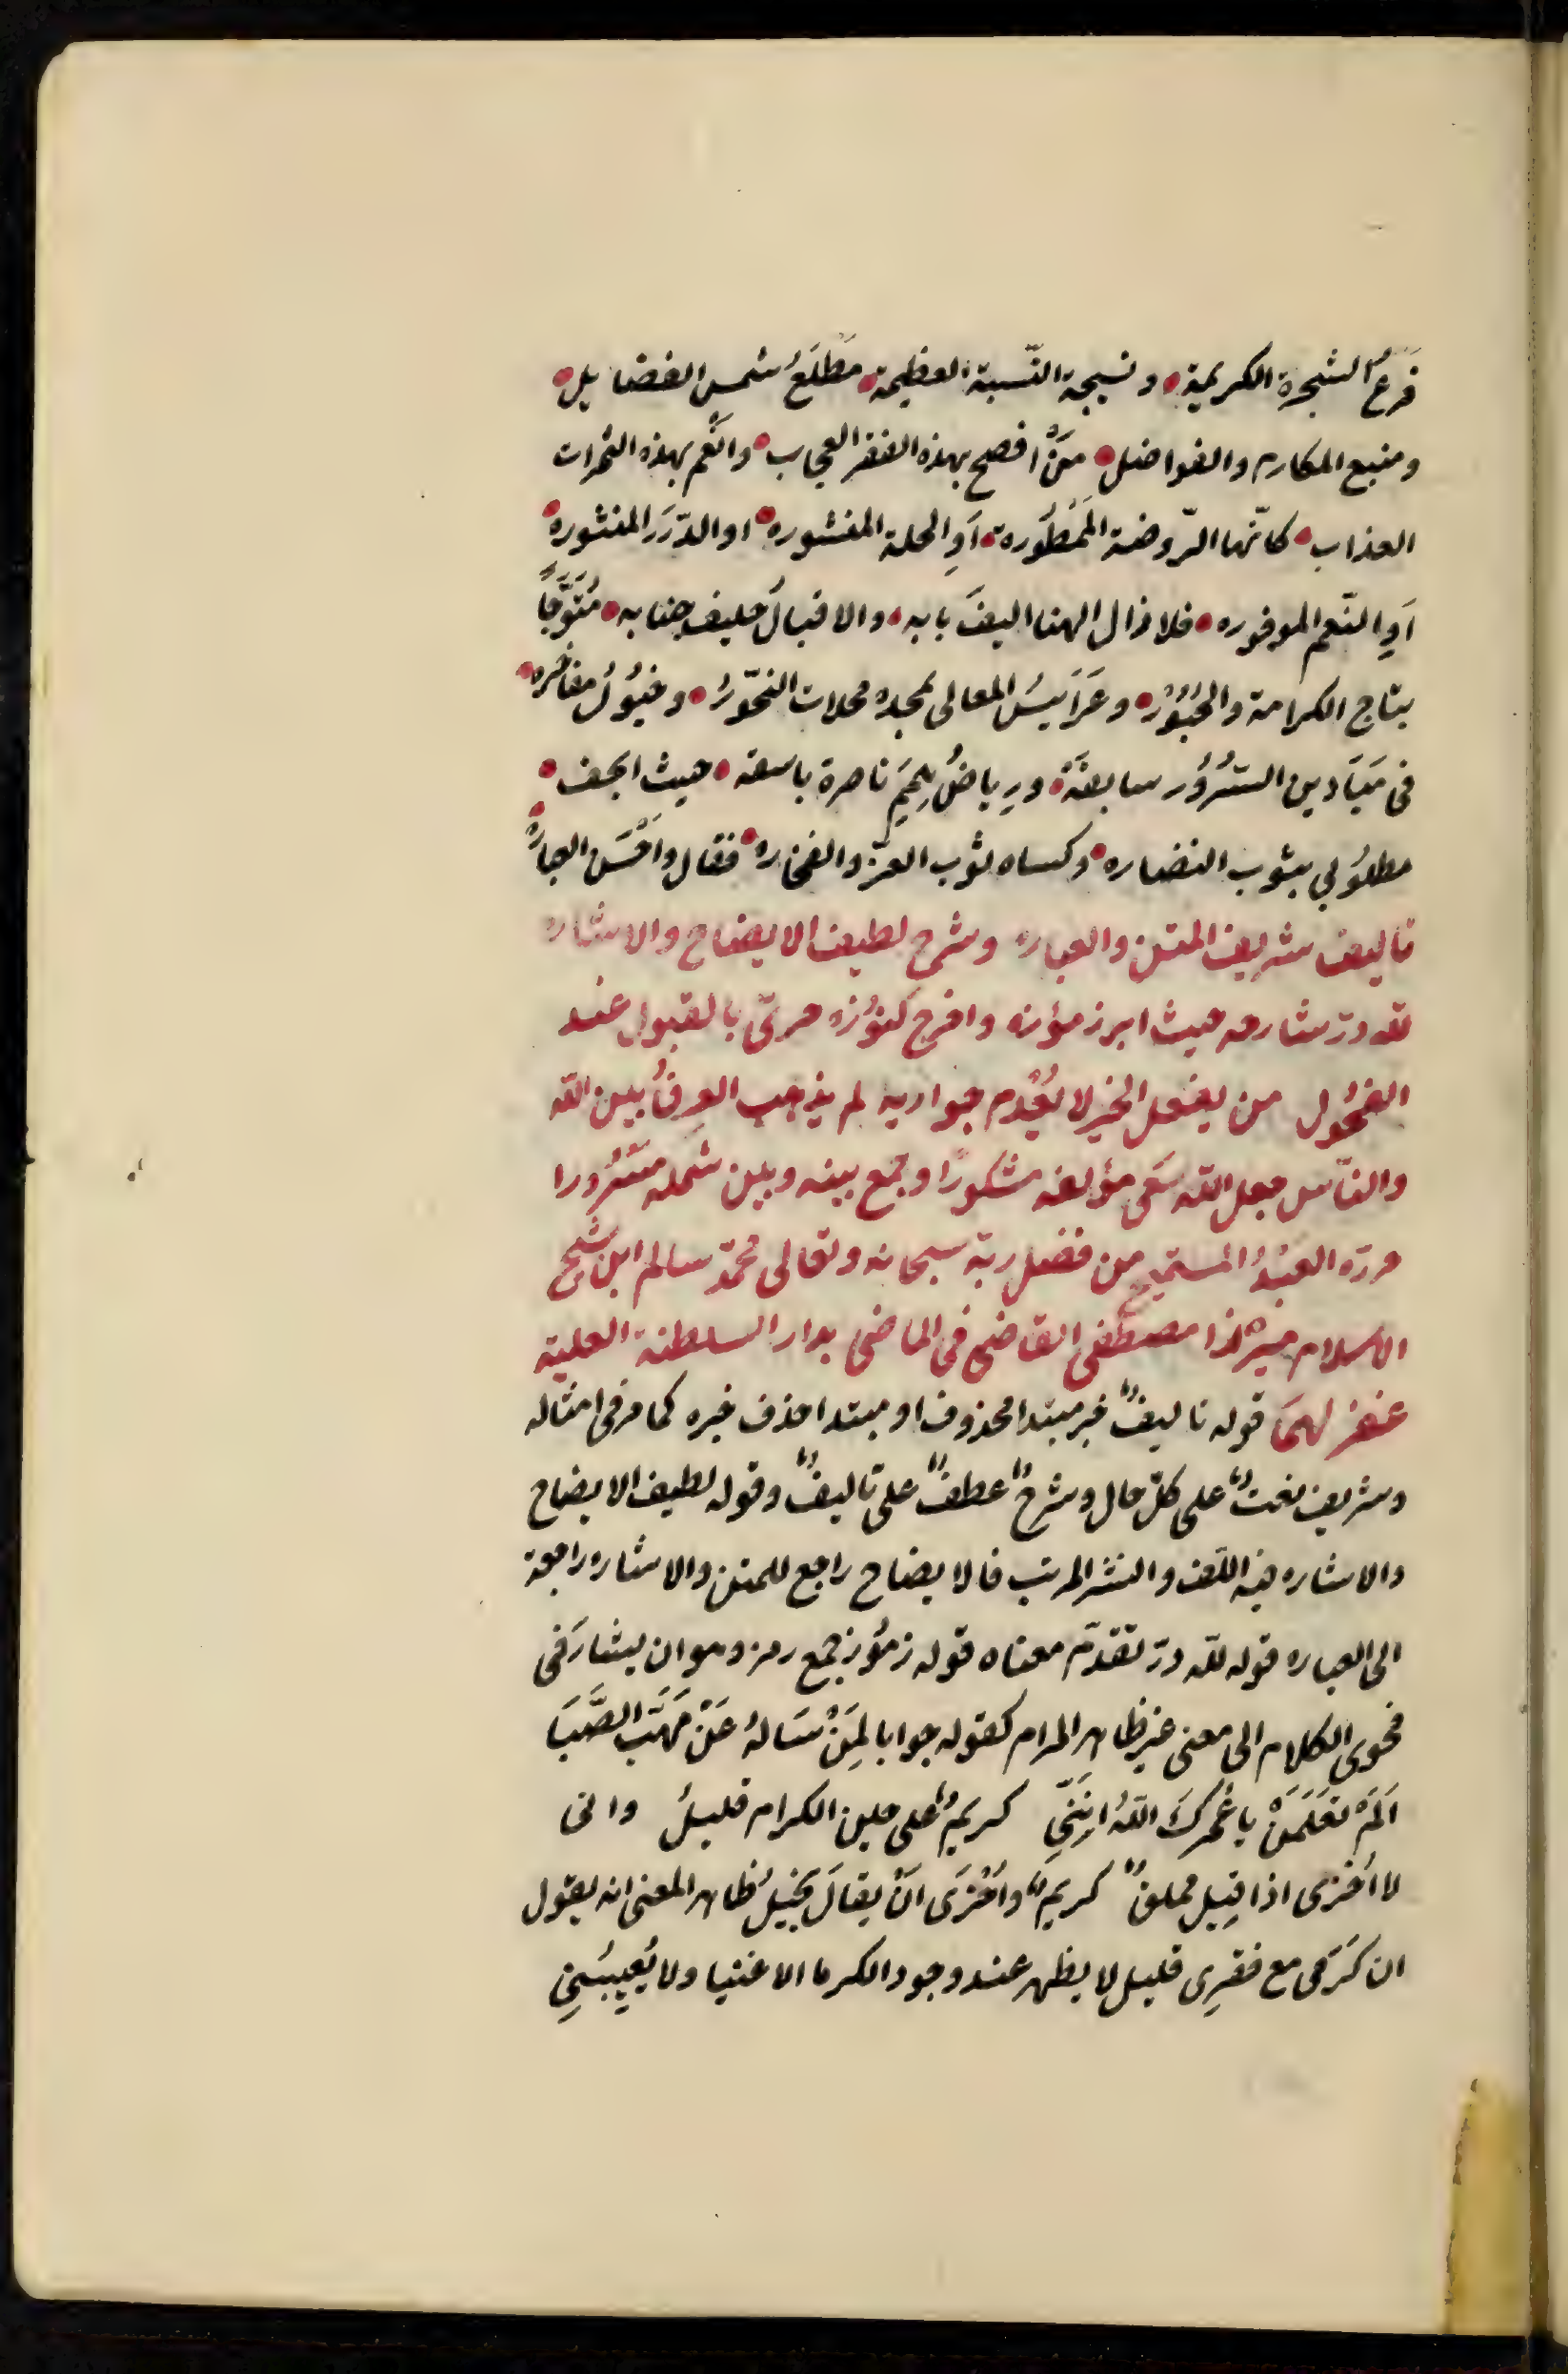 فَرعُ الشجرة الكريمة • ونتيجة النّسبة العظيمة • مَطْلَعُ شمس الفضايل •
ومنبع المكارم والفواضل • مَنْ افصح بهذه الفقر العجاب • وانْعم بهذه الثمرات
العذاب • كانّها الرّوضة المَمْطُورة • اَوِ الحلة المنشوره • او الدّرَر المنثوره •
اَوِ النّعم الموفوره • فلا زال الهنا اليفَ بابه • والاقبالُ حليف جنابه • مُتَوَّجاً
بتاج الكرامة والحُبُوْر • وعَرَايسُ المعالى بمجده محلات النحّور • وخيُولُ مفاخره •
فى مَيَادين السّرُوُر سابقَة • ورياضُ ناضرة باسقه • حيث اتحف •
مطلوُبي بثوب النضاره • وكساه ثوب العزّ والفخاره • فقال واَحْسَن العبارَه •
تاليف شريف المتن والعباره وشرح لطيف الايضاح والاشاره
لله درّ شارحه حيث ابرز رموُزه واخرج كنوُزه حرىّ بالقبول عند
الفحُول من يفعل الخير لا يُعْدم جوازيه لم يذهب العرفُ بين الله
والنّاس جعل الله سَعى مؤلفه مشكورًا وجمع بينه وبين شمله مَسْرُورا
حرّره العَبْدُ المستميح من فضل ربّه سبحانه وتعالى محمّد سالم ابن شيخ
الاسلام ميرْزا مصطفى القاضى فى الماضى بدار السلطنة العلية
غفر لهمَا قوله تاليفٌ خبر مبتدا محذوف او مبتدا حذف خبره كما مر فى امثاله
وشريف نعتٌ على كلّ حال وشرحٌ عطفٌ على تاليفٌ وقوله لطيف الايضاح
والاشاره فيه اللّف والنشر المرتب فالايضاح راجع للمتن والاشاره راجعة
الى العباره قوله للّه درّ تقدّم معناه قوله رمُوز جمع رمز وهو ان يشارَ فى
فحوى الكلام الى معنى غير ظاهر المرام كقوله جوابا لِمَنْ سَالهُ عَنْ مَهَبّ الصَّبَا
اَلَمْ تَعْلَمَنْ يا عَمْركَ اللّهُ انِنَّىِ كريمٌ على حين الكرام قليلُ وانى
لا اُخزى اذا قِيل مملقٌ كريمٌ واُخْزَى انْ يقالَ بَخِيلُ ظاهر المعنى انه يقول
ان كَرَمى مع فقرِى قليل لا يظهر عند وجود الكرما الاغنيا ولا